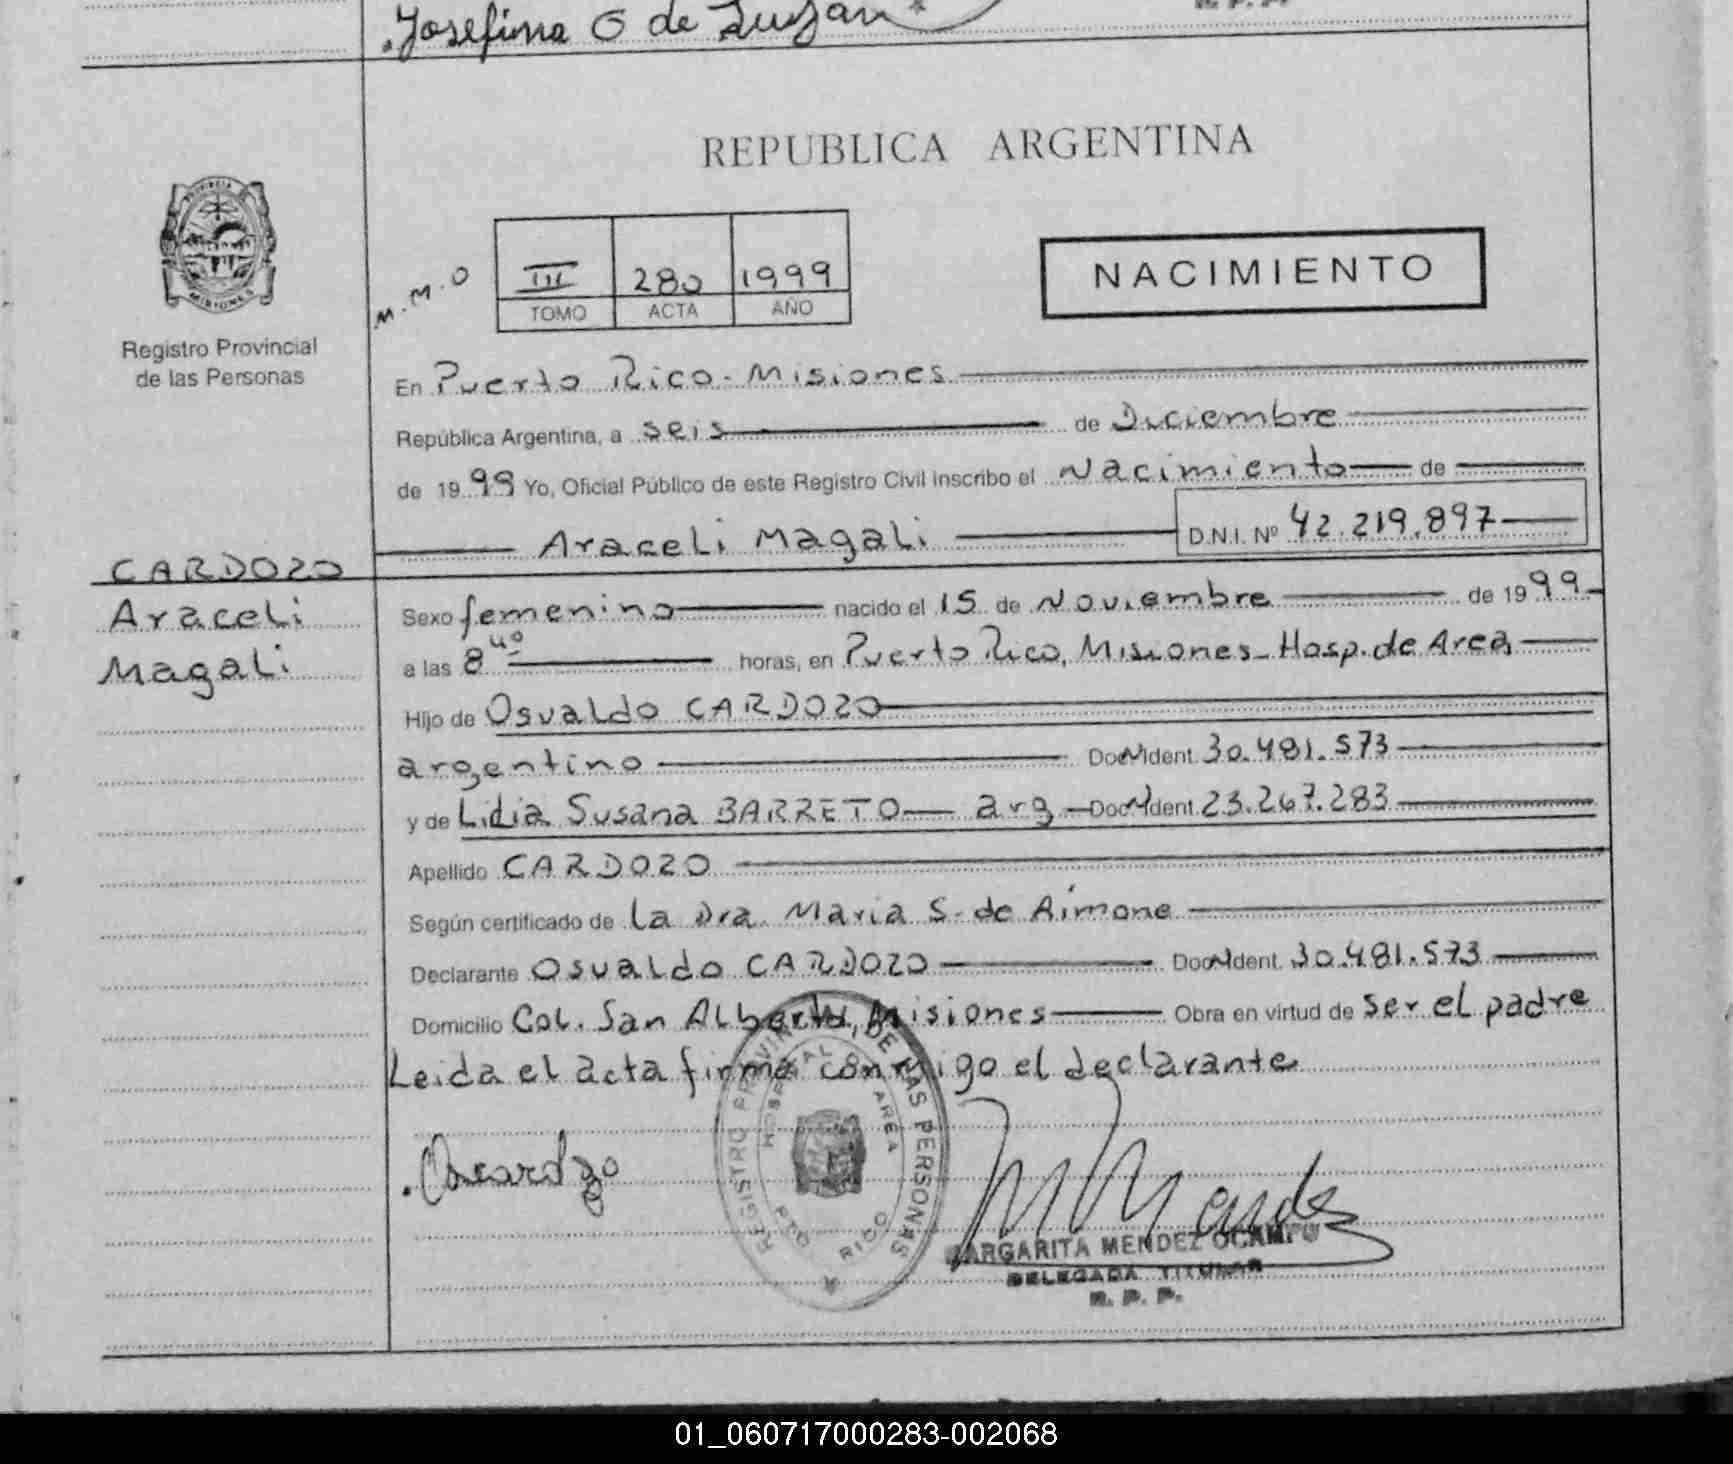 Josefina G de Luján
REPUBLICA ARGENTINA
PROVINCIA
MISIONES
Registro Provincial
de las Personas
M.M.O
III 280 1999
TOMO ACTA AÑO
NACIMIENTO
En Puerto Rico - Misiones
República Argentina, a seis de Diciembre
de 1999 Yo, Oficial Público de este Registro Civil inscribo el Nacimiento de
Araceli Magali D.N.I. Nº 42.219.897
CARDOZO
Araceli
Magali
Sexo femenino nacido el 15 de Noviembre de 1999
a las 8 40 horas, en Puerto Rico, Misiones - Hosp. de Area
Hijo de Osvaldo CARDOZO
argentino Doc. Ident. 30.481.573
y de Lidia Susana BARRETO arg Doc. Ident. 23.267.283
Apellido CARDOZO
Según certificado de La Dra. Maria S. de Aimone
Declarante Osvaldo CARDOZO Doc. Ident. 30.481.573
Domicilio Col. San Alberto, Misiones Obra en virtud de ser el padre
Leida el acta firma conmigo el declarante
REGISTRO PROVINCIAL DE LAS PERSONAS
HOSPITAL DE AREA
PTO RICO
MARGARITA MENDEZ OCAMPO
DELEGADA TITULAR
R. P. P.
01_060717000283-002068